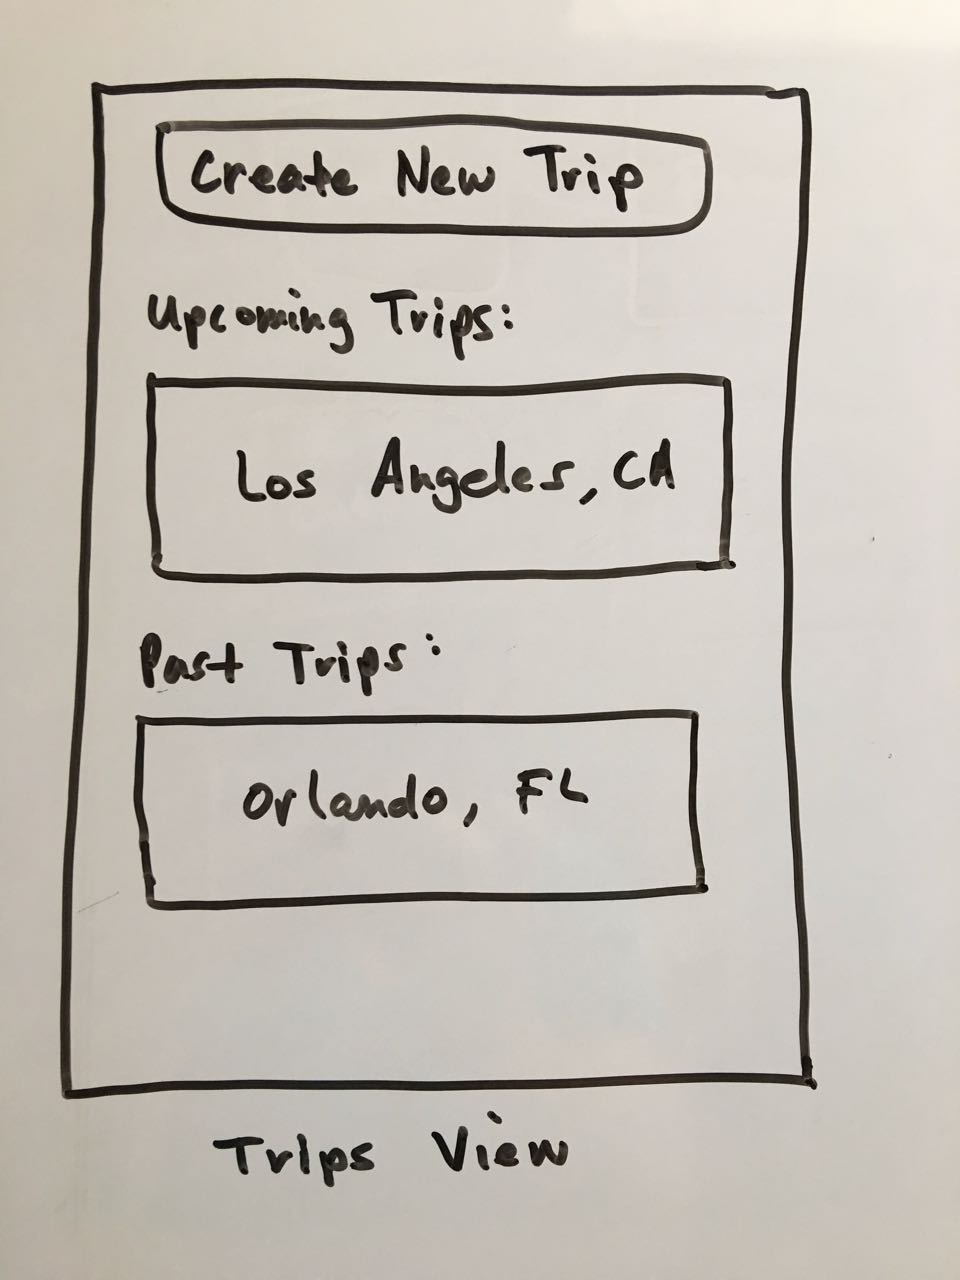 Create New Trip
Upcoming Trips:
Los Angeles, CA
Past Trips:
Orlando, FL
Trips View